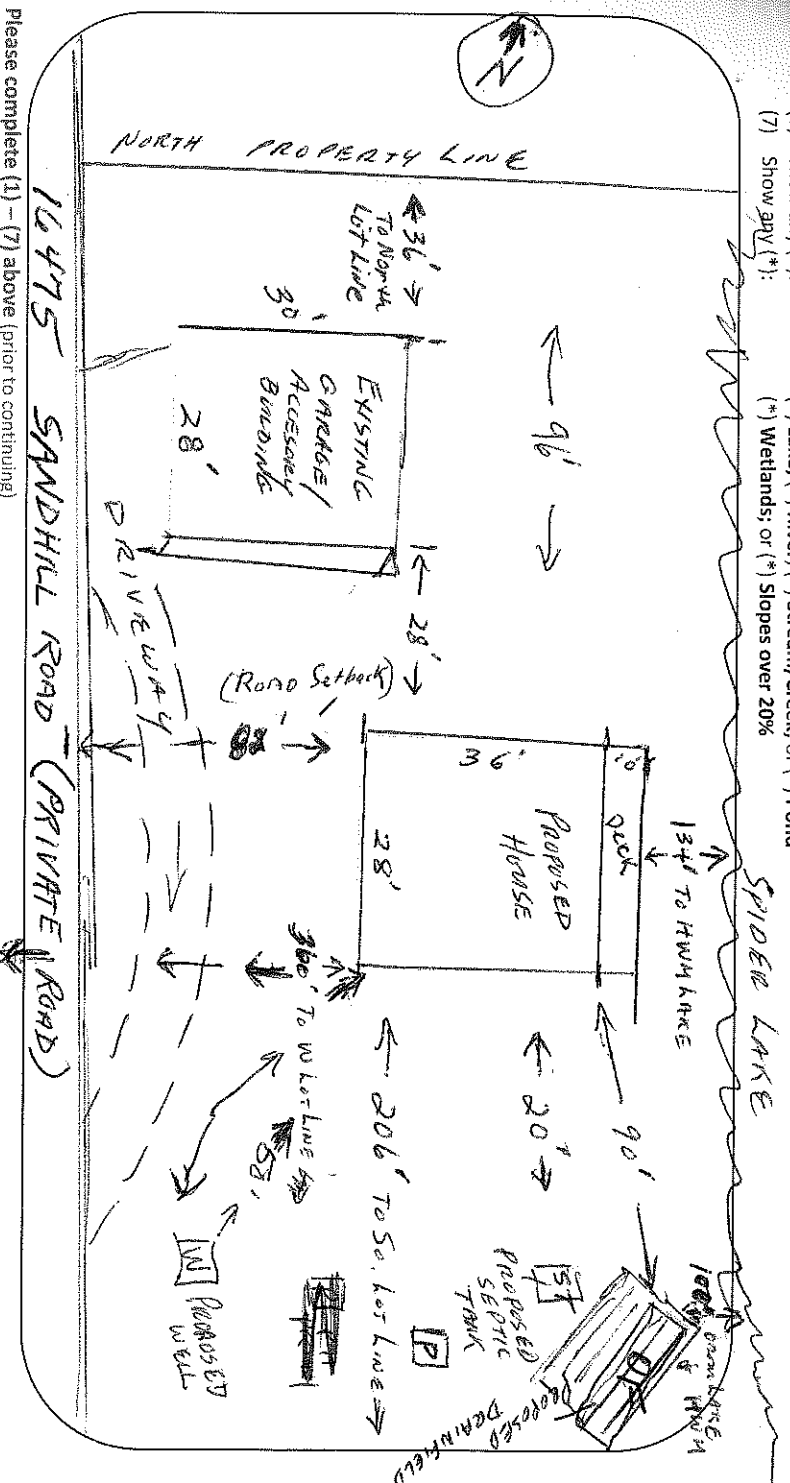 (7) Show any (*):
(*) Wetlands; or (*) Slopes over 20%
SPIDER LAKE
N
NORTH PROPERTY LINE
← 36' →
TO NORTH
LOT LINE
← 96' →
30'
EXISTING
GARAGE/
ACCESORY
BUILDING
28'
← 28' →
DRIVEWAY
(ROAD Setback)
36'
10'
Deck
PROPOSED
HOUSE
28'
134' TO HWM LAKE
← 90'
← 20' →
← 206' TO SO. LOT LINE →
360' TO W LOT LINE
58'
ST
PROPOSED
SEPTIC
TANK
P
W
PROPOSED
WELL
DF
PROPOSED
DRAINFIELD
100'
FROM LAKE
HWM
16475 SANDHILL ROAD (PRIVATE ROAD)
Please complete (1) – (7) above (prior to continuing)